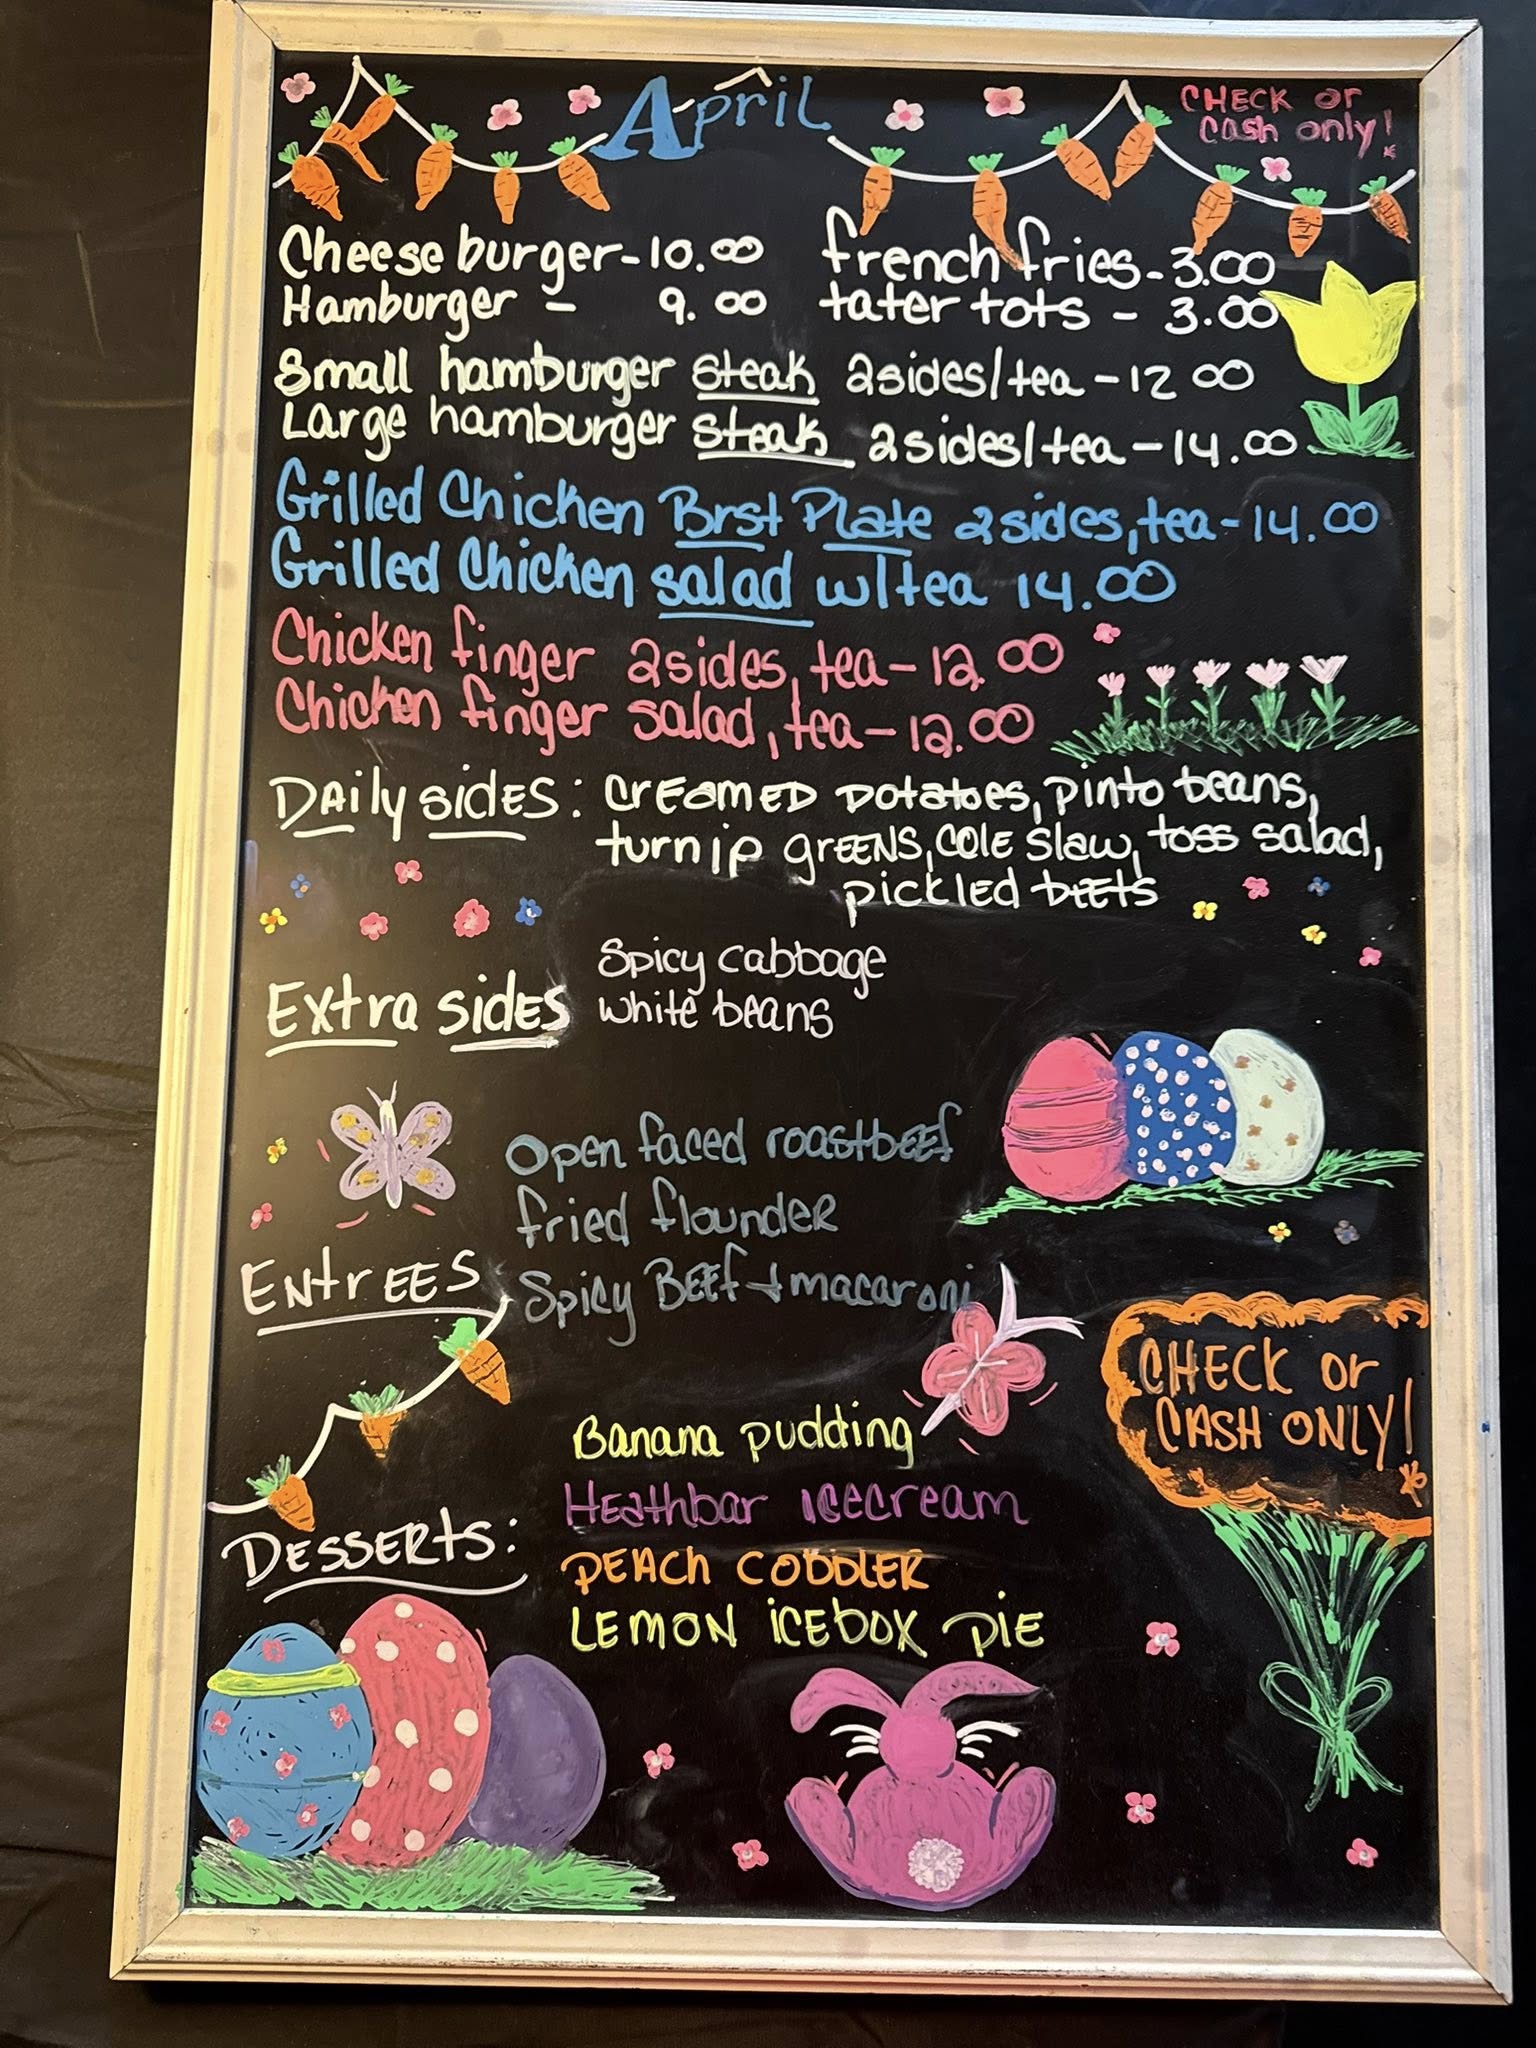 April
CHECK or
Cash only!
Cheese burger - 10.00
Hamburger - 9.00
french fries - 3.00
tater tots - 3.00
Small hamburger steak 2 sides/tea - 12 00
Large hamburger steak 2 sides/tea - 14.00
Grilled Chicken Brst Plate 2 sides, tea - 14.00
Grilled Chicken salad w/tea 14.00
Chicken finger 2 sides, tea - 12.00
Chicken finger salad, tea - 12.00
DAily sidES: crEamED potatoes, pinto beans,
turnip grEENS, COlE slaw, toss salad,
picklED bEEts
Extra sidES
Spicy cabbage
white beans
Open faced roastbEEf
fried flounder
Spicy BEEf + macaroni
ENtrEES
CHECK or
CASH ONLY!
DESSERTS:
Banana pudding
HEathbar icecream
PEACH COBBLER
LEMON icEbox piE